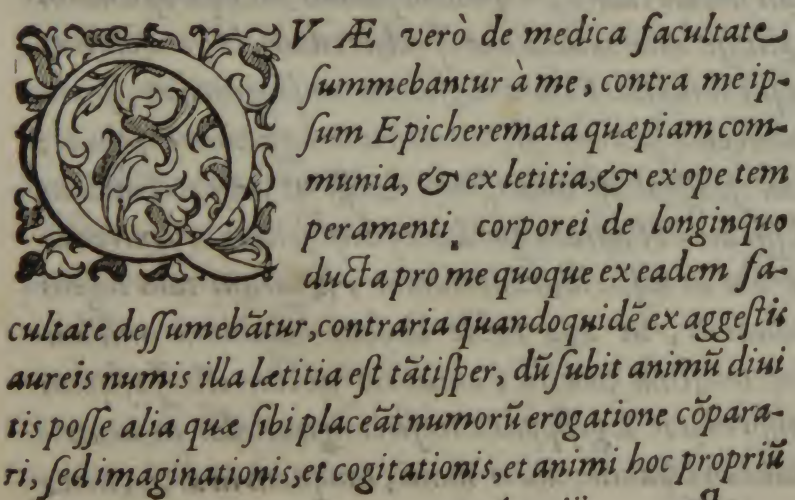 QVÆ verò de medica facultate
ſummebantur à me, contra me ip-
ſum Epicheremata quæpiam com-
munia, & ex letitia, & ex ope tem
peramenti, corporei de longinquo
ducta pro me quoque ex eadem fa-
cultate deſſumebãtur, contraria quandoquidẽ ex aggeſtis
aureis numis illa lætitia eſt tãtiſper, dũ ſubit animũ diui
tis poſſe alia quæ ſibi placeãt numorũ erogatione cõpara-
ri, ſed imaginationis, et cogitationis, et animi hoc propriũ